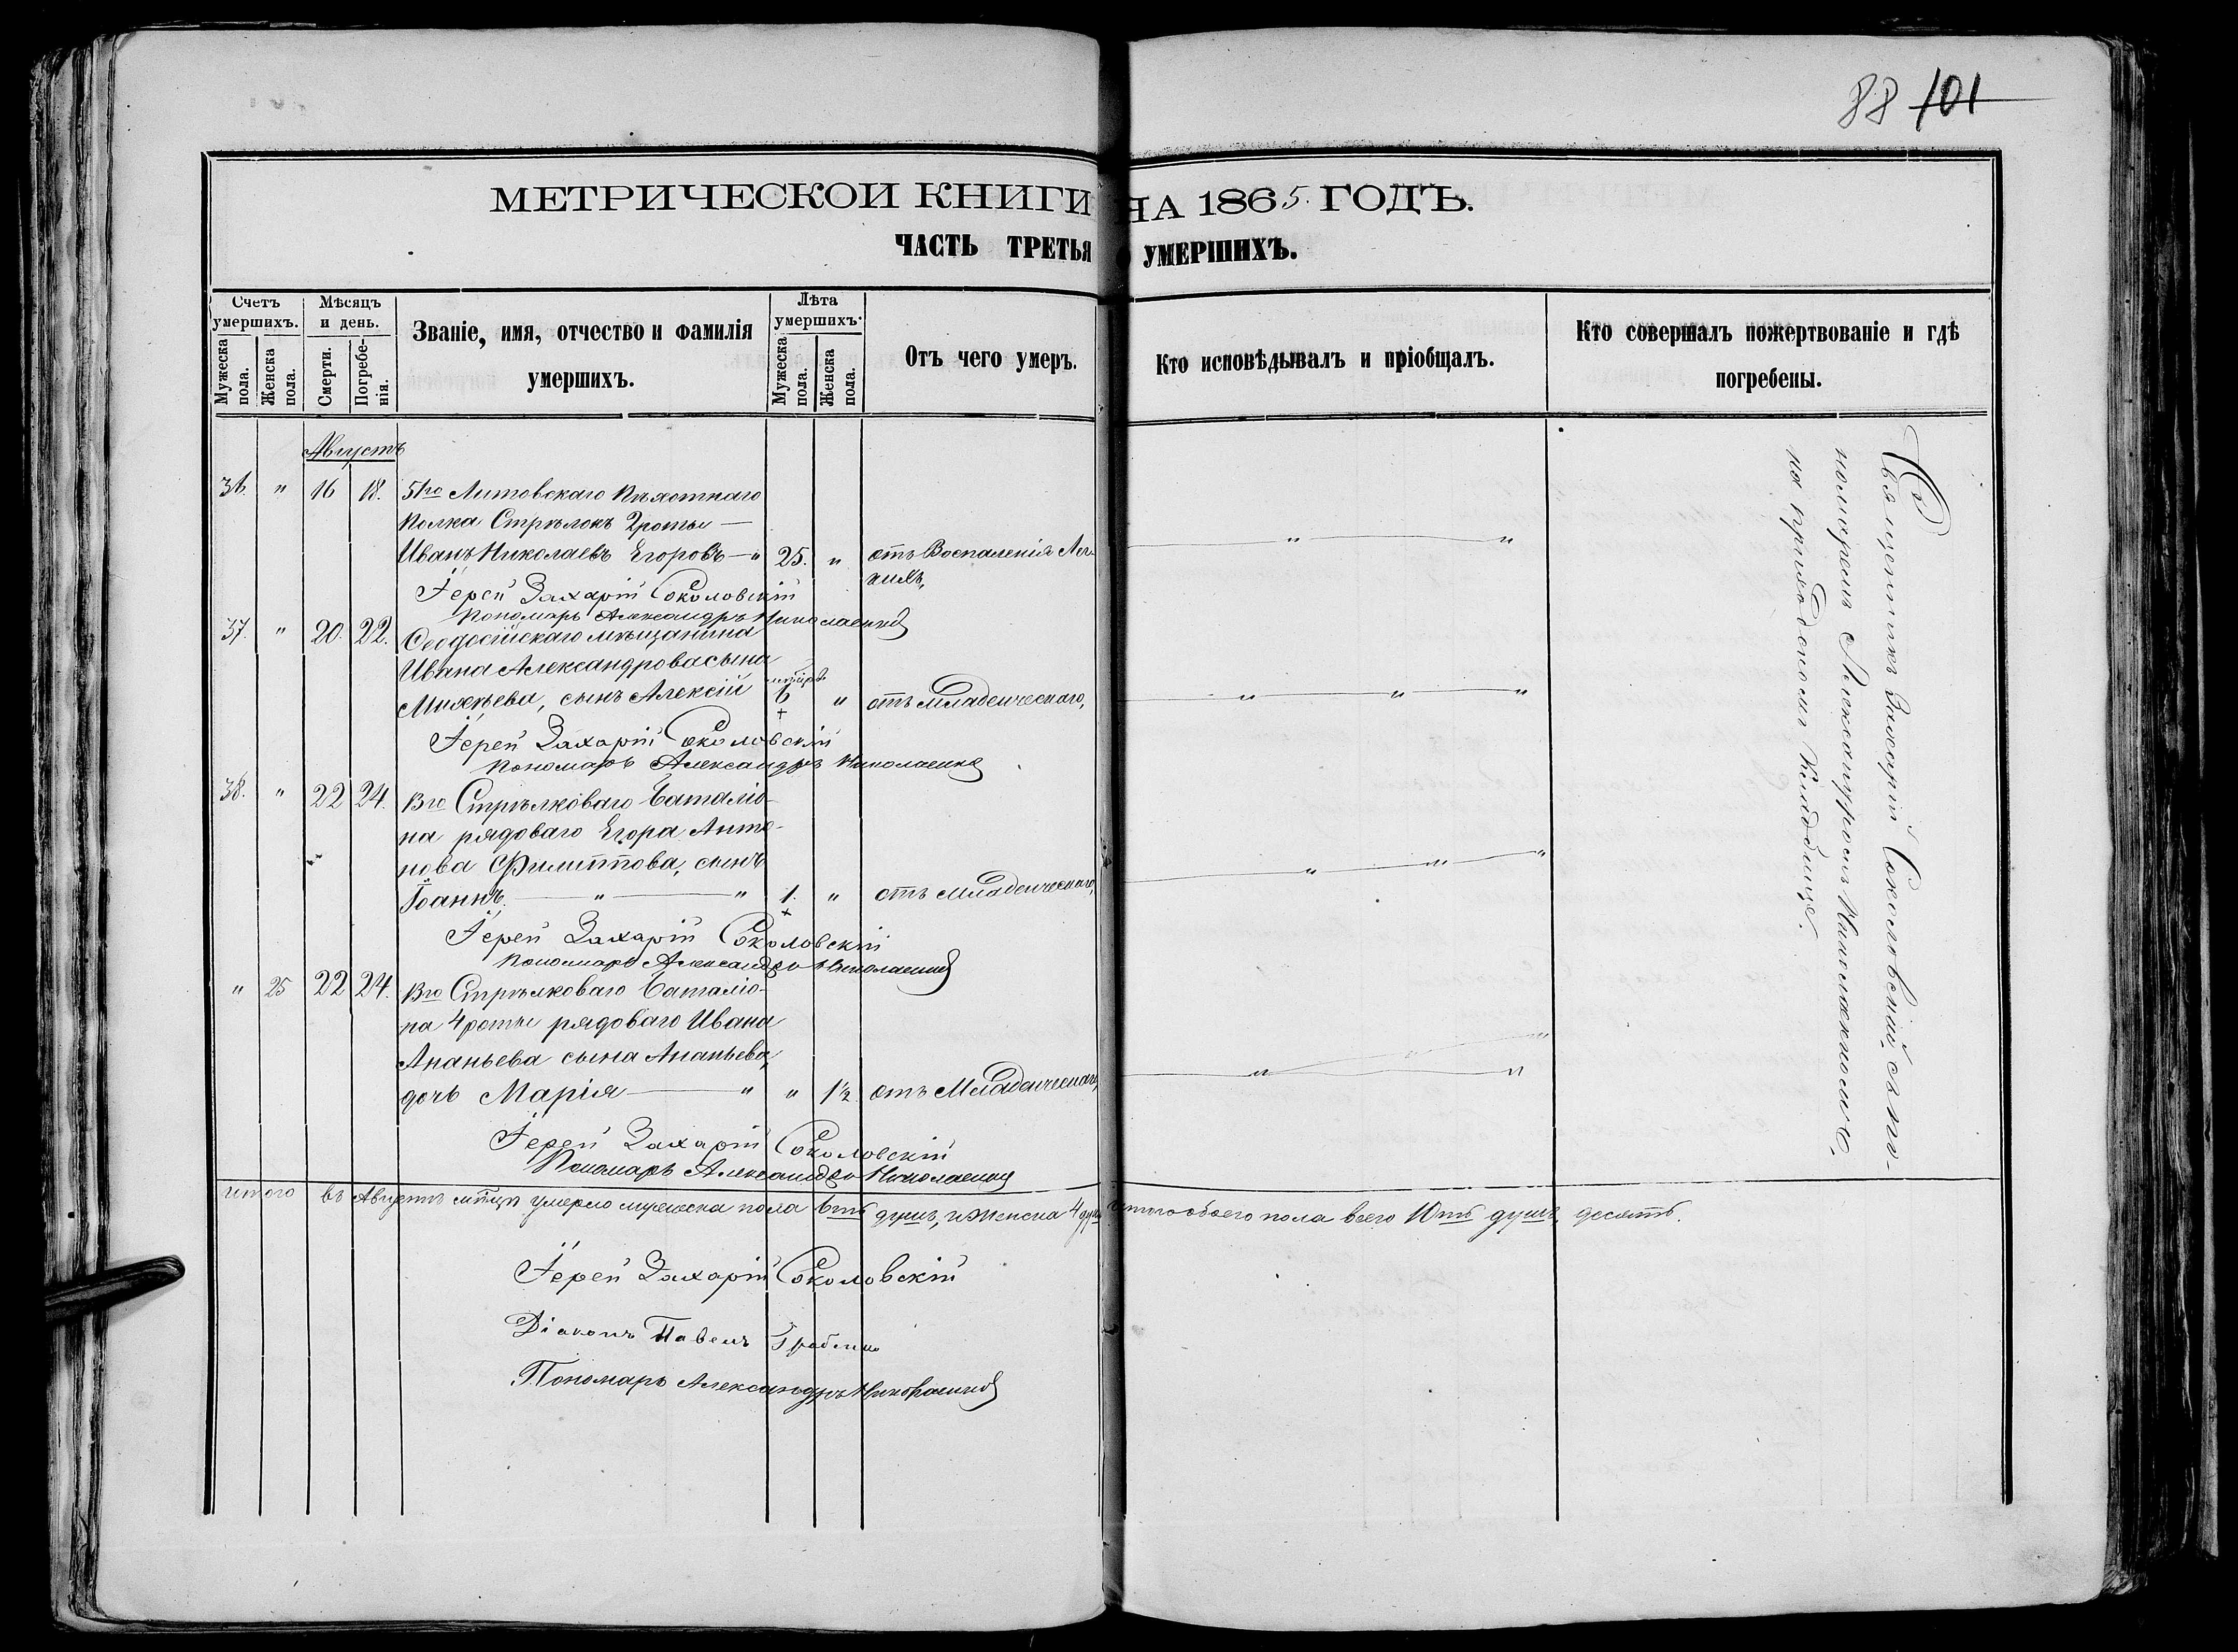 88 101
МЕТРИЧЕСКОЙ КНИГИ НА 1865. ГОДЪ.
ЧАСТЬ ТРЕТЬЯ УМЕРШИХЪ.
Счетъ умершихъ.
Мужеска пола.
Женска пола.
Мѣсяцъ и день.
Смерти.
Погребенія.
Званіе, имя, отчество и фамилія
умершихъ.
Лѣта умершихъ.
Мужеска пола.
Женска пола.
Отъ чего умеръ.
Кто исповѣдывалъ и пріобщалъ.
Кто совершалъ пожертвованіе и гдѣ
погребены.
Августъ
36. " 16 18. 51го Литовскаго Пѣхотнаго
Полка Стрѣлокъ 2 роты —
Иванъ Николаевъ Егоровъ — " 25. " отъ Воспаленія Лег-
кихъ,
Іерей Захарій Соколовскій
Пономарь Александръ Николаенко
37. " 20. 22. Ѳеодосійскаго мѣщанина
Ивана Александрова сына
Михѣева, сынъ Алексій 6 " отъ младенческаго,
Іерей Захарій Соколовскій
Пономарь Александръ Николаенко
38. " 22 24. 13го Стрѣлковаго Баталіо-
на рядоваго Егора Анто-
нова Филиппова, сынъ
Іоаннъ. — " — " 1. " отъ Младенческаго,
Іерей Захарій Соколовскій
Пономарь Александръ Николаенко
" 25 22 24. 13го Стрѣлковаго Баталіо-
на 4 роты рядоваго Ивана
Ананьева сына Ананьева,
дочь Марія — " " 1½ отъ Младенческаго,
Іерей Захарій Соколовскій
Пономарь Александръ Николаенко
Священникъ Захарій Соколовскій, съ по-
номаремъ Александромъ Николаенкомъ,
на приходскомъ Кладбище.
Итого въ Августѣ мѣсяцѣ умерло мужеска пола 6ть душъ, и женска 4 души а того обоего пола всего 10ть душъ, десять.
Іерей Захарій Соколовскій
Діаконъ Павелъ
Пономарь Александръ Николаенко